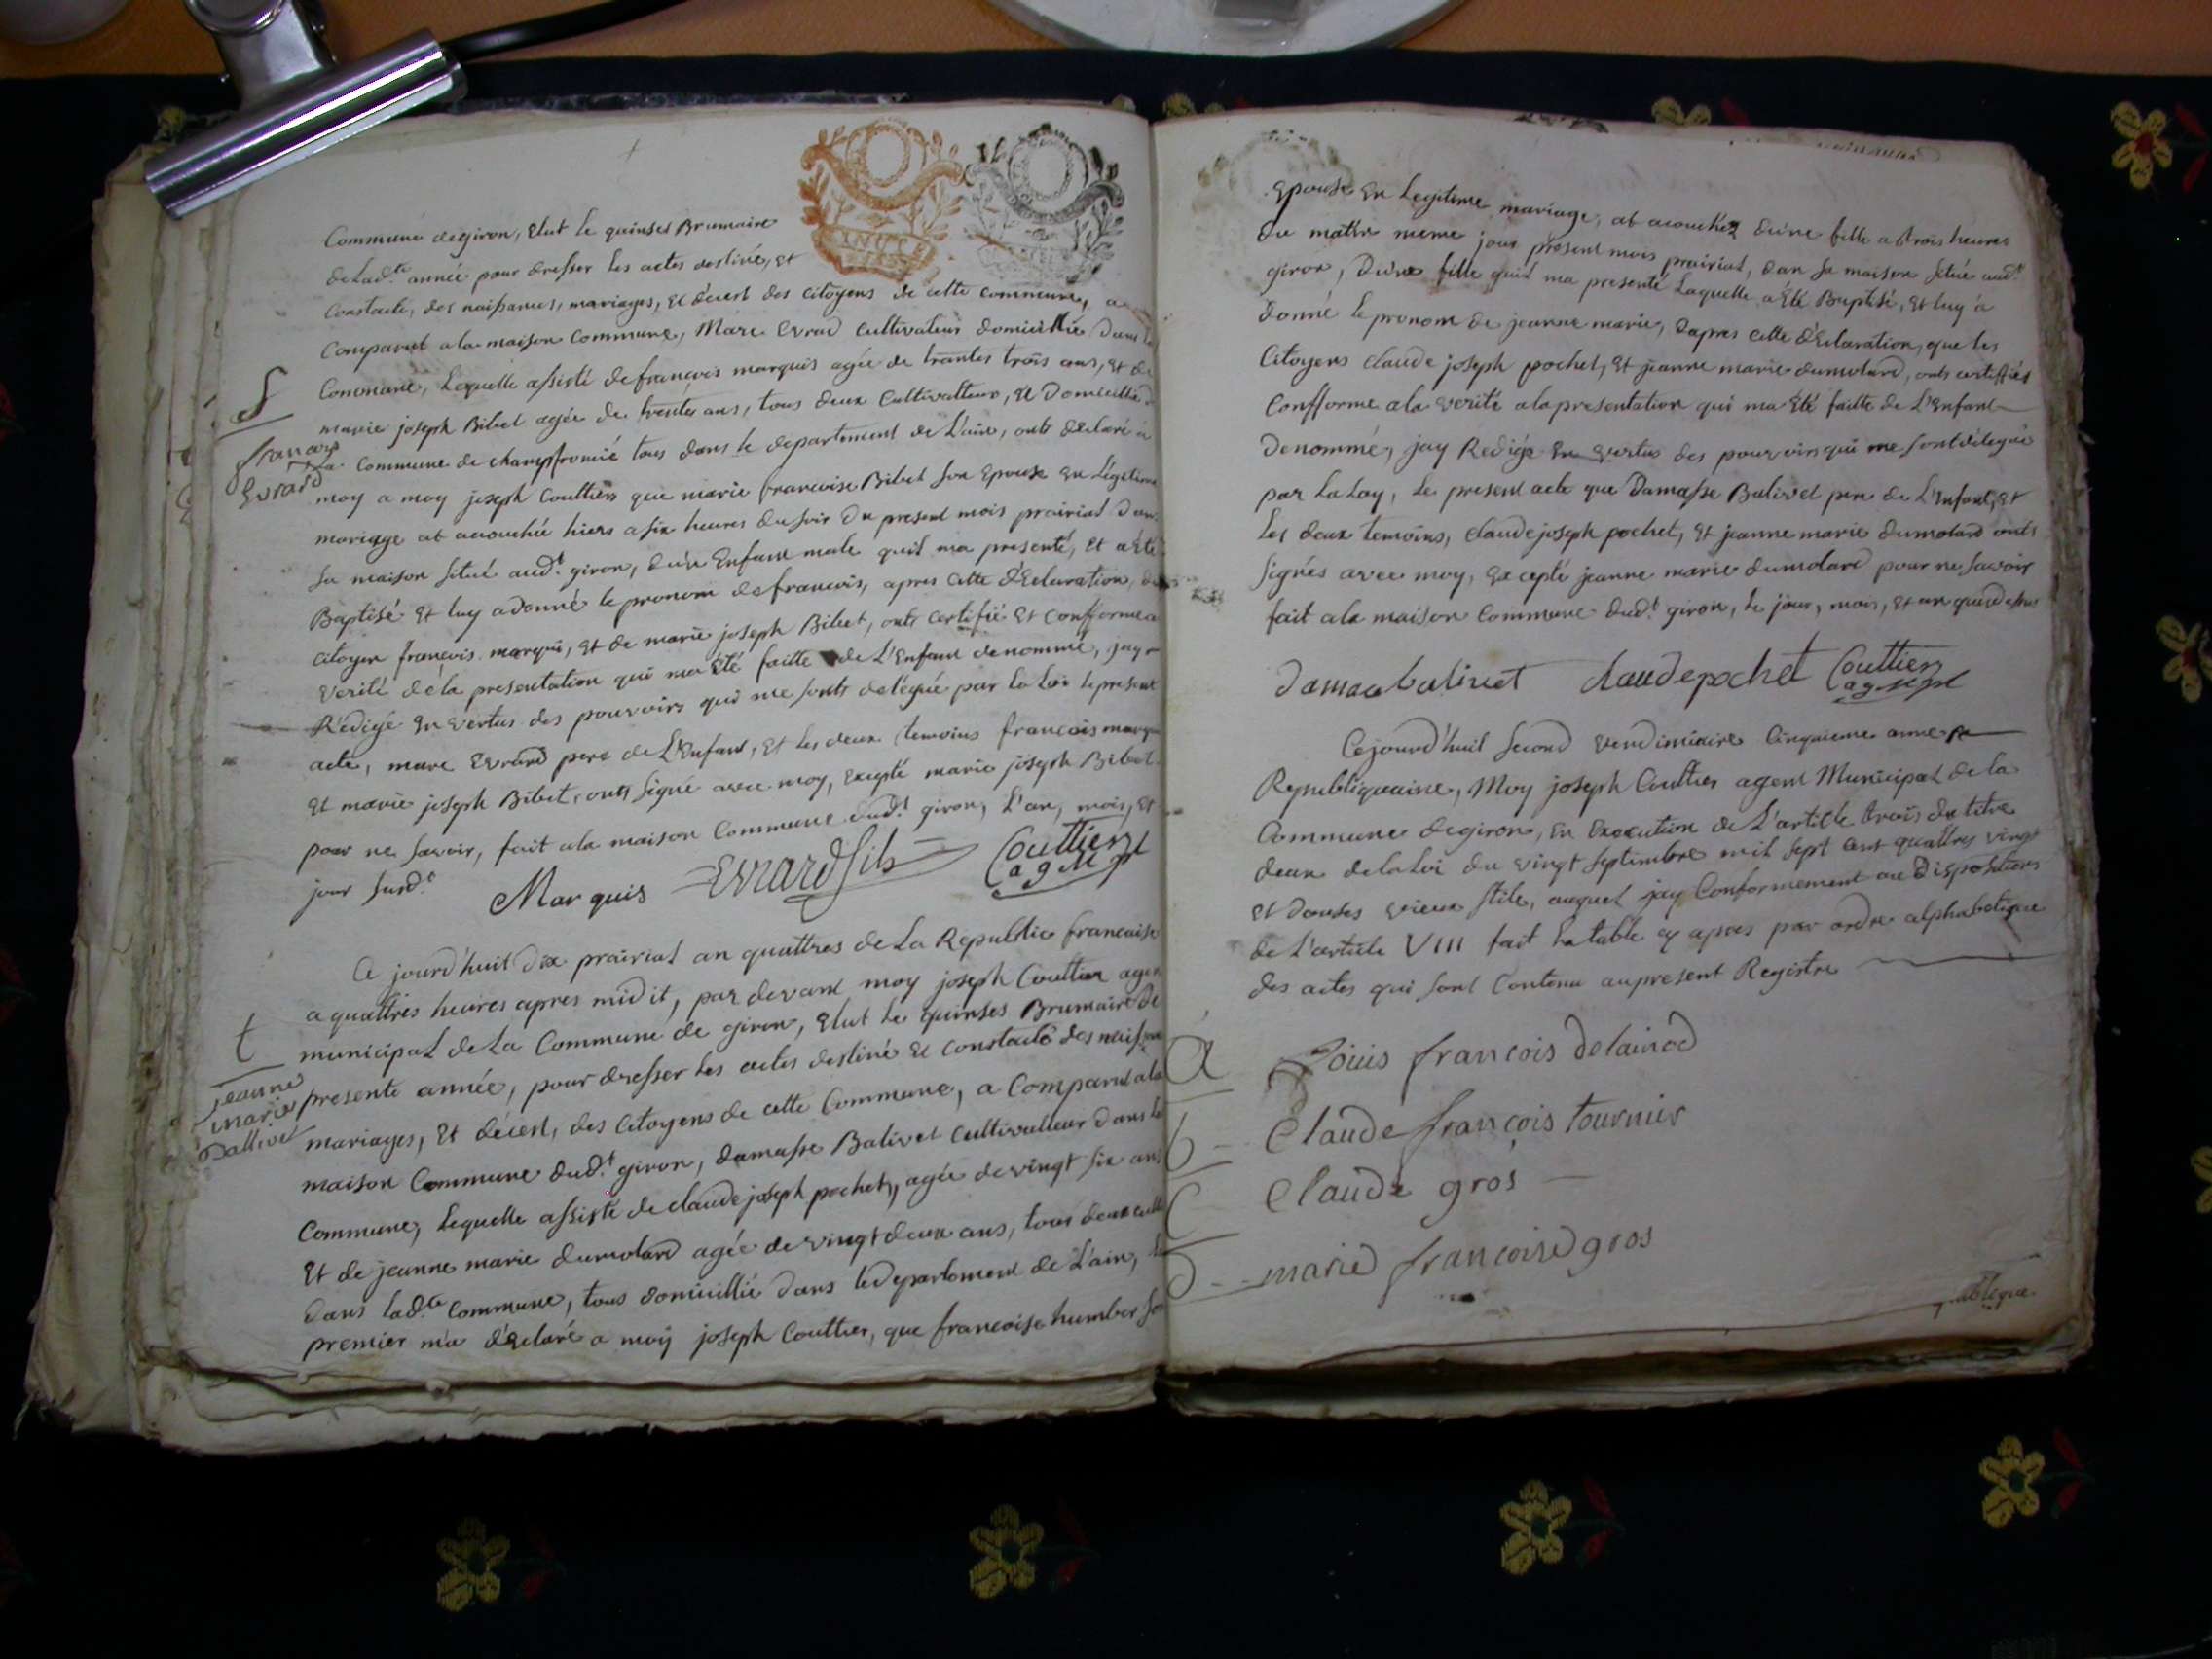 Commune de giron, Elut le quinses Brumaire
de lad.te année pour dresser les actes destiné, et
constaté, des naissances, mariages, et décest des citoyens de cette commune, a
Comparut a la maison Commune, Marc Evrad cultivateur domicillié dans la
Commune, Lequelle assisté de françois marquis agée de trantes trois ans, et de
marie joseph Bibet agée de trentes ans, tous deux Cultivatteur, et Domicillié
La Commune de champfromié tous dans le département de L'ain, onts déclaré a
françois
Evrard
moy a moy joseph Couttier que marie francoise Bibet son Epouse En Légitime
mariage at acouchée hiers a six heures du soir du present mois prairial dans
sa maison situé aud.t giron, d'un Enfant male quil ma presenté, Et a été
Baptisé Et luy a donné le pronom de francois, apres cette déclaration,
citoyen françois marquis, et de marie joseph Bibet, onts certifié Et confforme a
Verité de la presentation qui ma Eté faitte de L'Enfant denommé, jay
Rédigé En Vertus des pouvoirs qui me sonts delégué par la Loi le present
acte, marc Evrard pere de L'Enfant, Et les deux temoins francois marquis
Et marie joseph Bibet, onts signé avec moy, Excepté marie joseph Bibet
pour ne savoir, fait a la maison Commune dud.t giron, L'an, mois, Et
jour susd.t
Marquis Evrard fils Couttier
ag M
Ce jourd'huit dix prairial an quattres de La Republic francaise
a quattres heures apres midit, par devant moy joseph Couttier agen
t municipal de La Commune de giron, Elut le quinses Brumaire de
jeanne
marie
Ballivet
presente année, pour dresser les actes destiné et constaté des naissance
mariages, Et décest, des Citoyens de cette Commune, a Comparut a la
maison Commune dud.t giron, damasse Balivet cultivatteur dans la
Commune, Lequelle assisté de claude joseph pochet, agée de vingt six ans
Et de jeanne marie dumolard agée de vingt deux ans, tous deux cult
dans lad.te Commune, tous domicillié dans le département de L'ain, le
premier m'a déclaré a moy joseph Couttier, que francoise humber son
Epouse En Legitime mariage, at acouchéz d'une fille a trois heures
du matin meme jour present mois prairial, dan sa maison situé aud.t
giron, D'une fille quil ma presenté Laquelle a Eté Baptisé, Et luy a
donné le pronom de jeanne marie, Dapres cette déclaration, que les
Citoyens claude joseph pochet, Et jeanne marie dumolard, onts certiffiés
Confforme a la verité a la presentation qui ma Eté faitte de L'Enfant
Denommé, jay Redigé En Vertus des pouvoirs qui me sont délegué
par La Loy, Le present acte que Damasse Balivet pere de L'Enfant, Et
Les deux temoins, claude joseph pochet, Et jeanne marie dumolard onts
signés avec moy, Excepté jeanne marie dumolard pour ne savoir
fait a la maison Commune dud.t giron, le jour, mois, Et an que dessus
damas balivet claude pochet Couttier
Cejourd'huil second Vendimiaire Cinquieme anne
Republiquaine, Moy joseph Couttier agent Municipal de la
Commune de giron, En Execution de L'article trois du titre
deux de la Loi du vingt septimbre mil sept cent quattres vingt
Et douses vieux stile, auquel jay Conformement au Dispositions
de L'article VIII fait La table cy apres par ordre alphabetique
des actes qui sont Contenu au present Registre
a Louis francois delainod
b Claude françois tournier
C Claude gros
D marie francoise gros